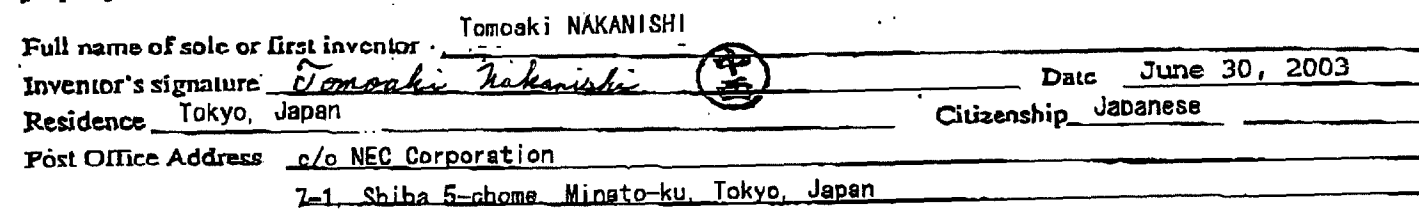 Tomoaki NAKANISHI
Full name of sole or first inventor
Inventor's signature Tomoaki Nakanishi 中西 Date June 30, 2003
Residence Tokyo, Japan Citizenship Japanese
Post Office Address c/o NEC Corporation
7-1, Shiba 5-chome Minato-ku, Tokyo, Japan